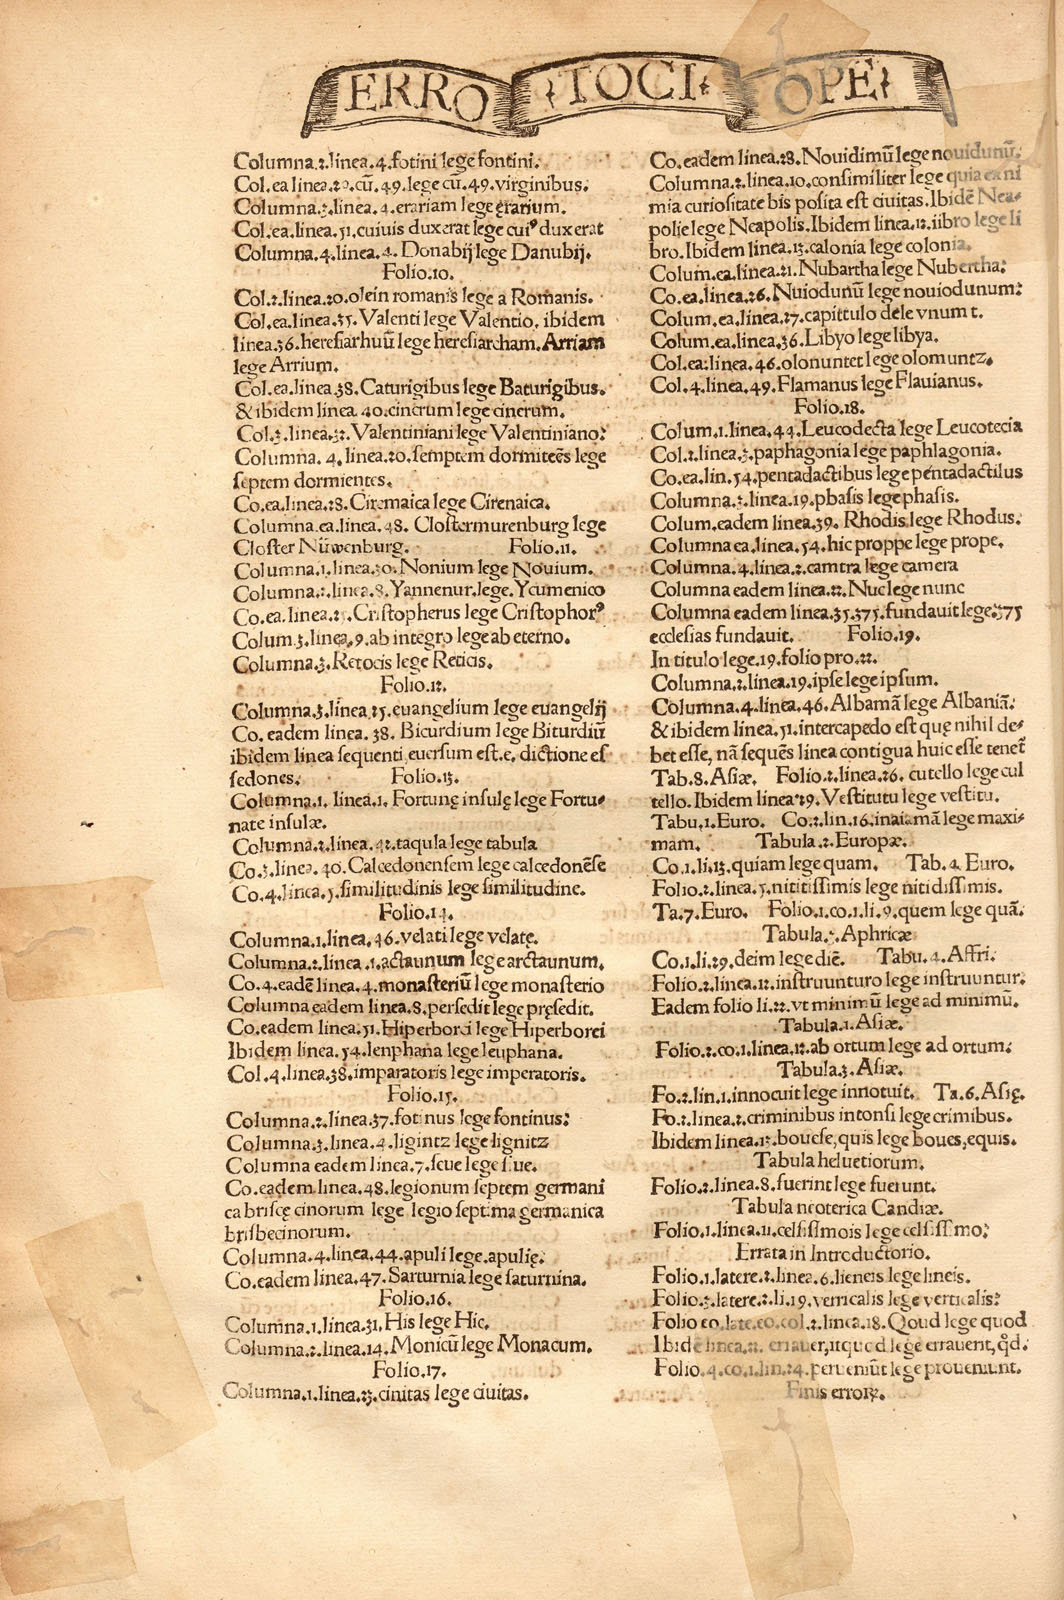 ERRO TOCI OPE
Columna.2.linea.4.fotini lege fontini.
Col.ea linea.20.cū.49.lege cū.49.virginibus.
Columna.3.linea.4.erariam lege ęrarium.
Col.ea.linea.51.cuiuis duxerat lege cuiꝰ duxerat
Columna.4.linea.4.Donabij lege Danubij.
Folio.10.
Col.2.linea.20.olein romanis lege a Romanis.
Col.ea.linea.35.Valenti lege Valentio, ibidem
linea.36.heresiarhuū lege heresiarcham. Arriam
lege Arrium.
Col.ea linea.38.Caturigibus lege Baturigibus.
&ibidem linea 40.cincrum lege cinerum.
Col.3.linea.32.Valentiniani lege Valentiniano:
Columna. 4.linea.20.semptem dormiteēs lege
septem dormientes.
Co.ea.linea.28.Ciremaica lege Cirenaica.
Columna.ea.linea.48. Clostermurenburg lege
Closter Nüwenburg. Folio.11.
Columna.1.linea.30.Nonium lege Nouium.
Columna.2.linea.8.Yannenur.lege.Ycumenico
Co.ea.linea.25.Cristopherus lege Cristophorꝰ
Colum.3.linea.9.ab integro lege ab eterno.
Columna.3.Retocis lege Reticis.
Folio.12.
Columna.3.linea.25.euangelium lege euangelij
Co. eadem linea.38. Bicurdium lege Biturdiū
ibidem linea sequenti euersum est.e. dictione es
sedones. Folio.13.
Columna.1. linea.1. Fortunę insulę lege Fortu-
nate insulæ.
Columna.2.linea.42.taqula lege tabula
Co.3.linea.40.Calcedonensem lege calcedonēse
Co.4.linea.5.similitudinis lege similitudine.
Folio.14.
Columna.1.linea.46.velati lege velatę.
Columna.2.linea.1.actaunum lege arctaunum.
Co.4.eadē linea.4.monasteriū lege monasterio
Columna eadem linea.8.persedit lege pręsedit.
Co.eadem linea.51.Hiperborci lege Hiperborei
Ibidem linea.54.lenphana lege leuphana.
Col.4.linea.38.imparatoris lege imperatoris.
Folio.15.
Columna.2.linea.37.fotinus lege fontinus:
Columna.3.linea.4.ligintz lege lignitz
Columna eadem linea.7.seue lege siue.
Co.eadem linea.48.legionum septem germani
ca briscę cinorum lege legio septima germanica
brisbecinorum.
Columna.4.linea.44.apuli lege.apulię.
Co.eadem linea.47.Sarturnia lege saturnina.
Folio.16.
Columna.1.linea.31.His lege Hic.
Columna.2.linea.14.Monicū lege Monacum.
Folio.17.
Columna.1.linea.23.cinitas lege ciuitas.
Co.eadem linea.28.Nouidimū lege nouidunū.
Columna.2.linea.10.consimiliter lege quia ex ni
mia curiositate bis posita est ciuitas.Ibidē Nea-
polie lege Neapolis.Ibidem linea.12.iibro lege li
bro.Ibidem linea.13.calonia lege colonia.
Colum.ea.linea.21.Nubartha lege Nubertha:
Co.ea.linea.26.Nuiodunū lege nouiodunum:
Colum.ea.linea.27.capittulo dele vnum t.
Colum.ea.linea.36.Libyo lege libya.
Col.ea:linea.46.olonuntet lege olomuntz.
Col.4.linea.49.Flamanus lege Flauianus.
Folio.18.
Colum.1.linea.44.Leucodecta lege Leucotecia
Col.2.linea.3.paphagonia lege paphlagonia.
Co.ea.lin.54.pentadactibus lege pentadactilus
Columna.3.linea.19.pbasis lege phasis.
Colum.eadem linea.39. Rhodis lege Rhodus.
Columna ea.linea.54.hic proppe lege prope.
Columna.4.linea.2.camtra lege camera
Columna eadem linea.22.Nuc lege nunc
Columna eadem linea.35.375.fundauit lege.375
ecclesias fundauit. Folio.19.
In titulo lege.19.folio pro.22.
Columna.2.linea.19.ipse lege ipsum.
Columna.4.linea.46.Albamā lege Albaniā.
&ibidem linea.51.intercapedo est quę nihil de-
bet esse, nā sequēs linea contigua huic esse tenet̄
Tab.8.Asiæ. Folio.2.linea.26.cutello lege cul
tello. Ibidem linea 29.Vestitutu lege vestitu.
Tabu.1.Euro. Co.2.lin.16.inaiamā lege maxi-
mam. Tabula.2.Europæ.
Co.1.li.13.quiam lege quam. Tab.4.Euro.
Folio.2.linea.5.nititissimis lege nitidissimis.
Ta.7.Euro. Folio.1.co.1.li.9.quem lege quā.
Aphricæ
Co.1.li.29.deim lege diē. Tabu.4.Affri.
Folio.2.linea.12.instruunturo lege instruuntur.
Eadem folio li.22.vt minimū lege ad minimū.
Tabula.1.Asiæ.
Folio.2.co.1.linea.12.ab ortum lege ad ortum:
Tabula.3.Asiæ.
Fo.2.lin.1.innocuit lege innotuit. Ta.6.Asię.
Fo.2.linea.2.criminibus intonsi lege crimibus.
Ibidem linea.13.bouese,quis lege boues,equis.
Tabula heluetiorum.
Folio.2.linea.8.fuerint lege fuerunt.
Tabula neoterica Candiæ.
Folio.1.linea.11.celsissimois lege celsissimo:
Errata in Introductorio.
Folio.1.latere.2.linea.6.lieneis lege lineis.
Folio.3.latere.2.li.19.verricalis lege verticalis:
Folio eo.late.eo.col.2.linea.18.Qoud lege quod
Ibidē linea.22. errauer,utquod lege errauent,qd̄.
Folio.4.co.1.lin.24.perueniūt lege proueniunt.
Finis errorꝝ.